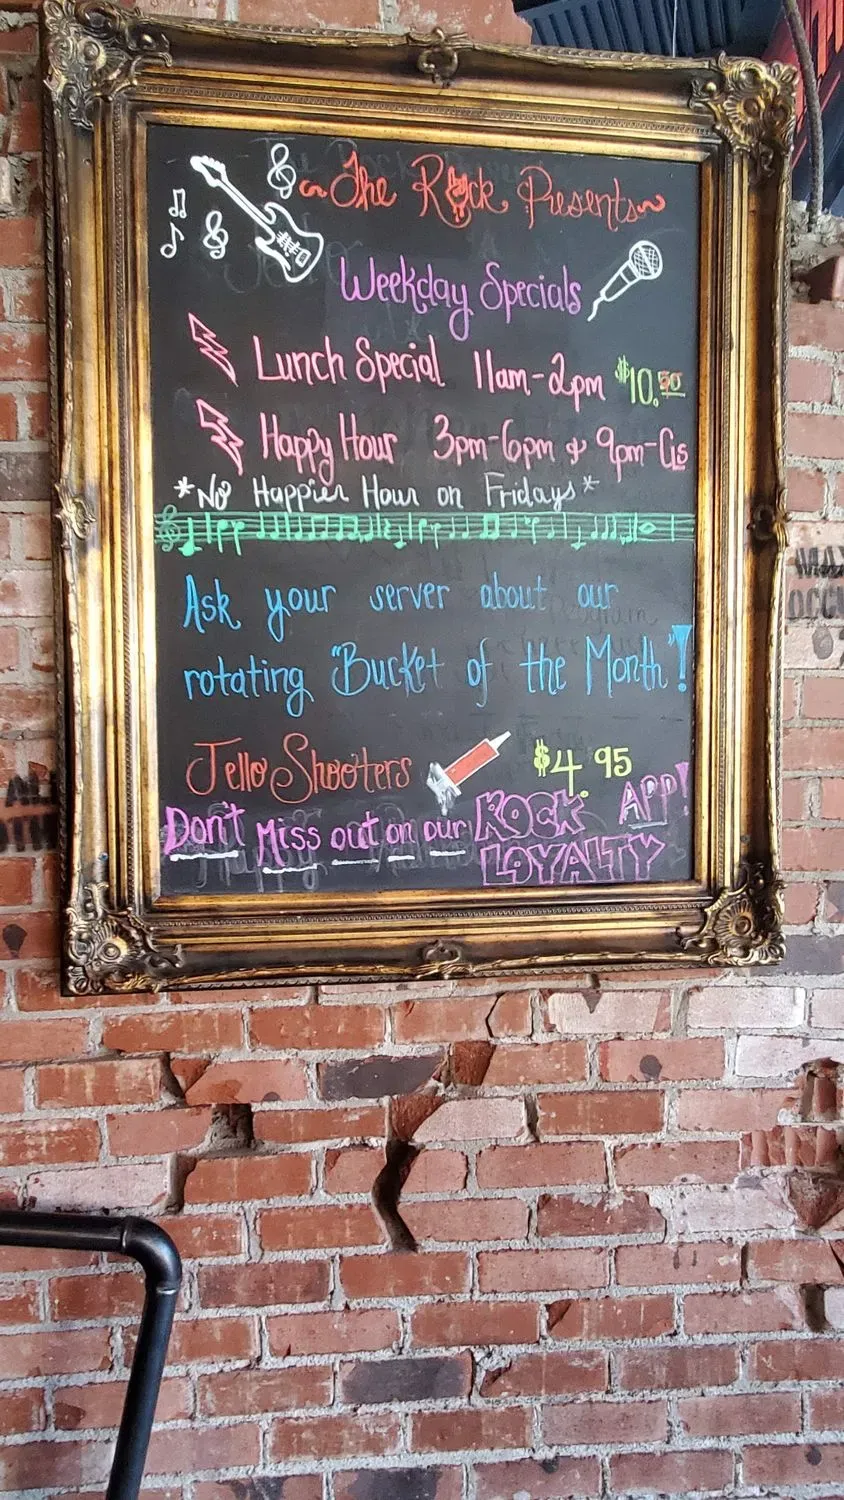 The Rock Presents
Weekday Specials
Lunch Special 11am-2pm $10.50
Happy Hour 3pm-6pm & 9pm-Cls
*No Happier Hour on Fridays*
Ask your server about our
rotating "Bucket of the Month"!
Jello Shooters $4.95
Don't Miss out on our ROCK APP!
LOYALTY